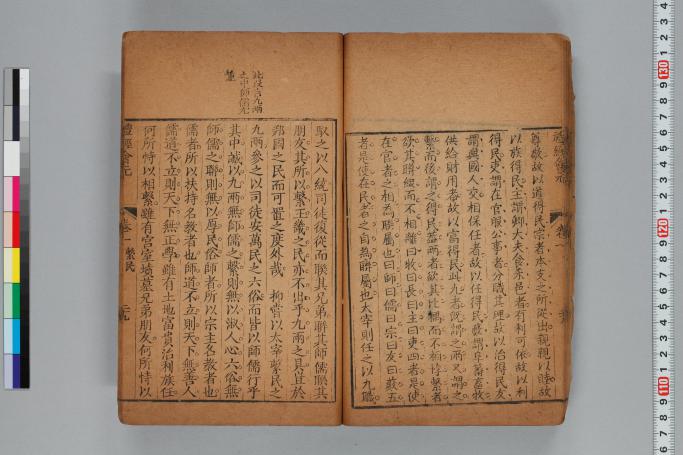 尊敬故以道得民宗者本支之所從出親親以睦故
以族得民主謂卿大夫食采邑者有利可依故以利
得民吏謂在官服公事者分職其理故以治得民友
謂與國人交相保任者故以任得民藪謂阜蕃畜牧
供給財用蕃故以富得民此九者旣謂之兩又謂之
繫而後謂之得民蓋兩者欲其比耦而不相悖繫者
欲其聯綴而不相離曰牧曰長曰主曰吏四者是使
在官者之相為聯屬也曰師曰儒曰宗曰友曰藪五
者是使在民者之自為聯屬也太宰則任之以九職
馭之以八統司徒復從而聯其兄弟聯其師儒聯其
朋友其所以繫王畿之民亦不出乎九兩之具豈於
邦國之民而可置之度外哉 抑嘗以太宰繫民之
九兩參之以司徒安萬民之六俗而皆以師儒行乎
其中誠以九兩無師儒之繫則無以淑人心六俗無
師儒之聯則無以厚民俗師者所以宗主名教者也
儒者所以扶持名教者也師道不立則天下無善人
儒道不立則天下無正學雖有土地富貴治利族任
何所恃以相繫雖有宮室墳墓兄弟朋友何所恃以
禮經會元
卷一 繫民
此段言九兩
之中師儒尤